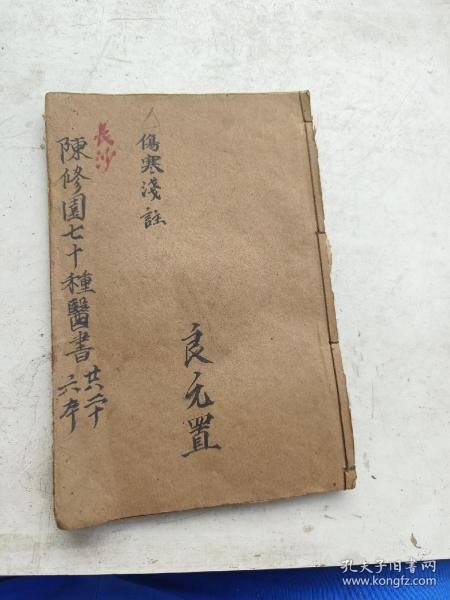 傷寒淺註
良元置
長沙
陳修園七十種醫書
共二十
六本
孔夫子旧书网
www.kongfz.com